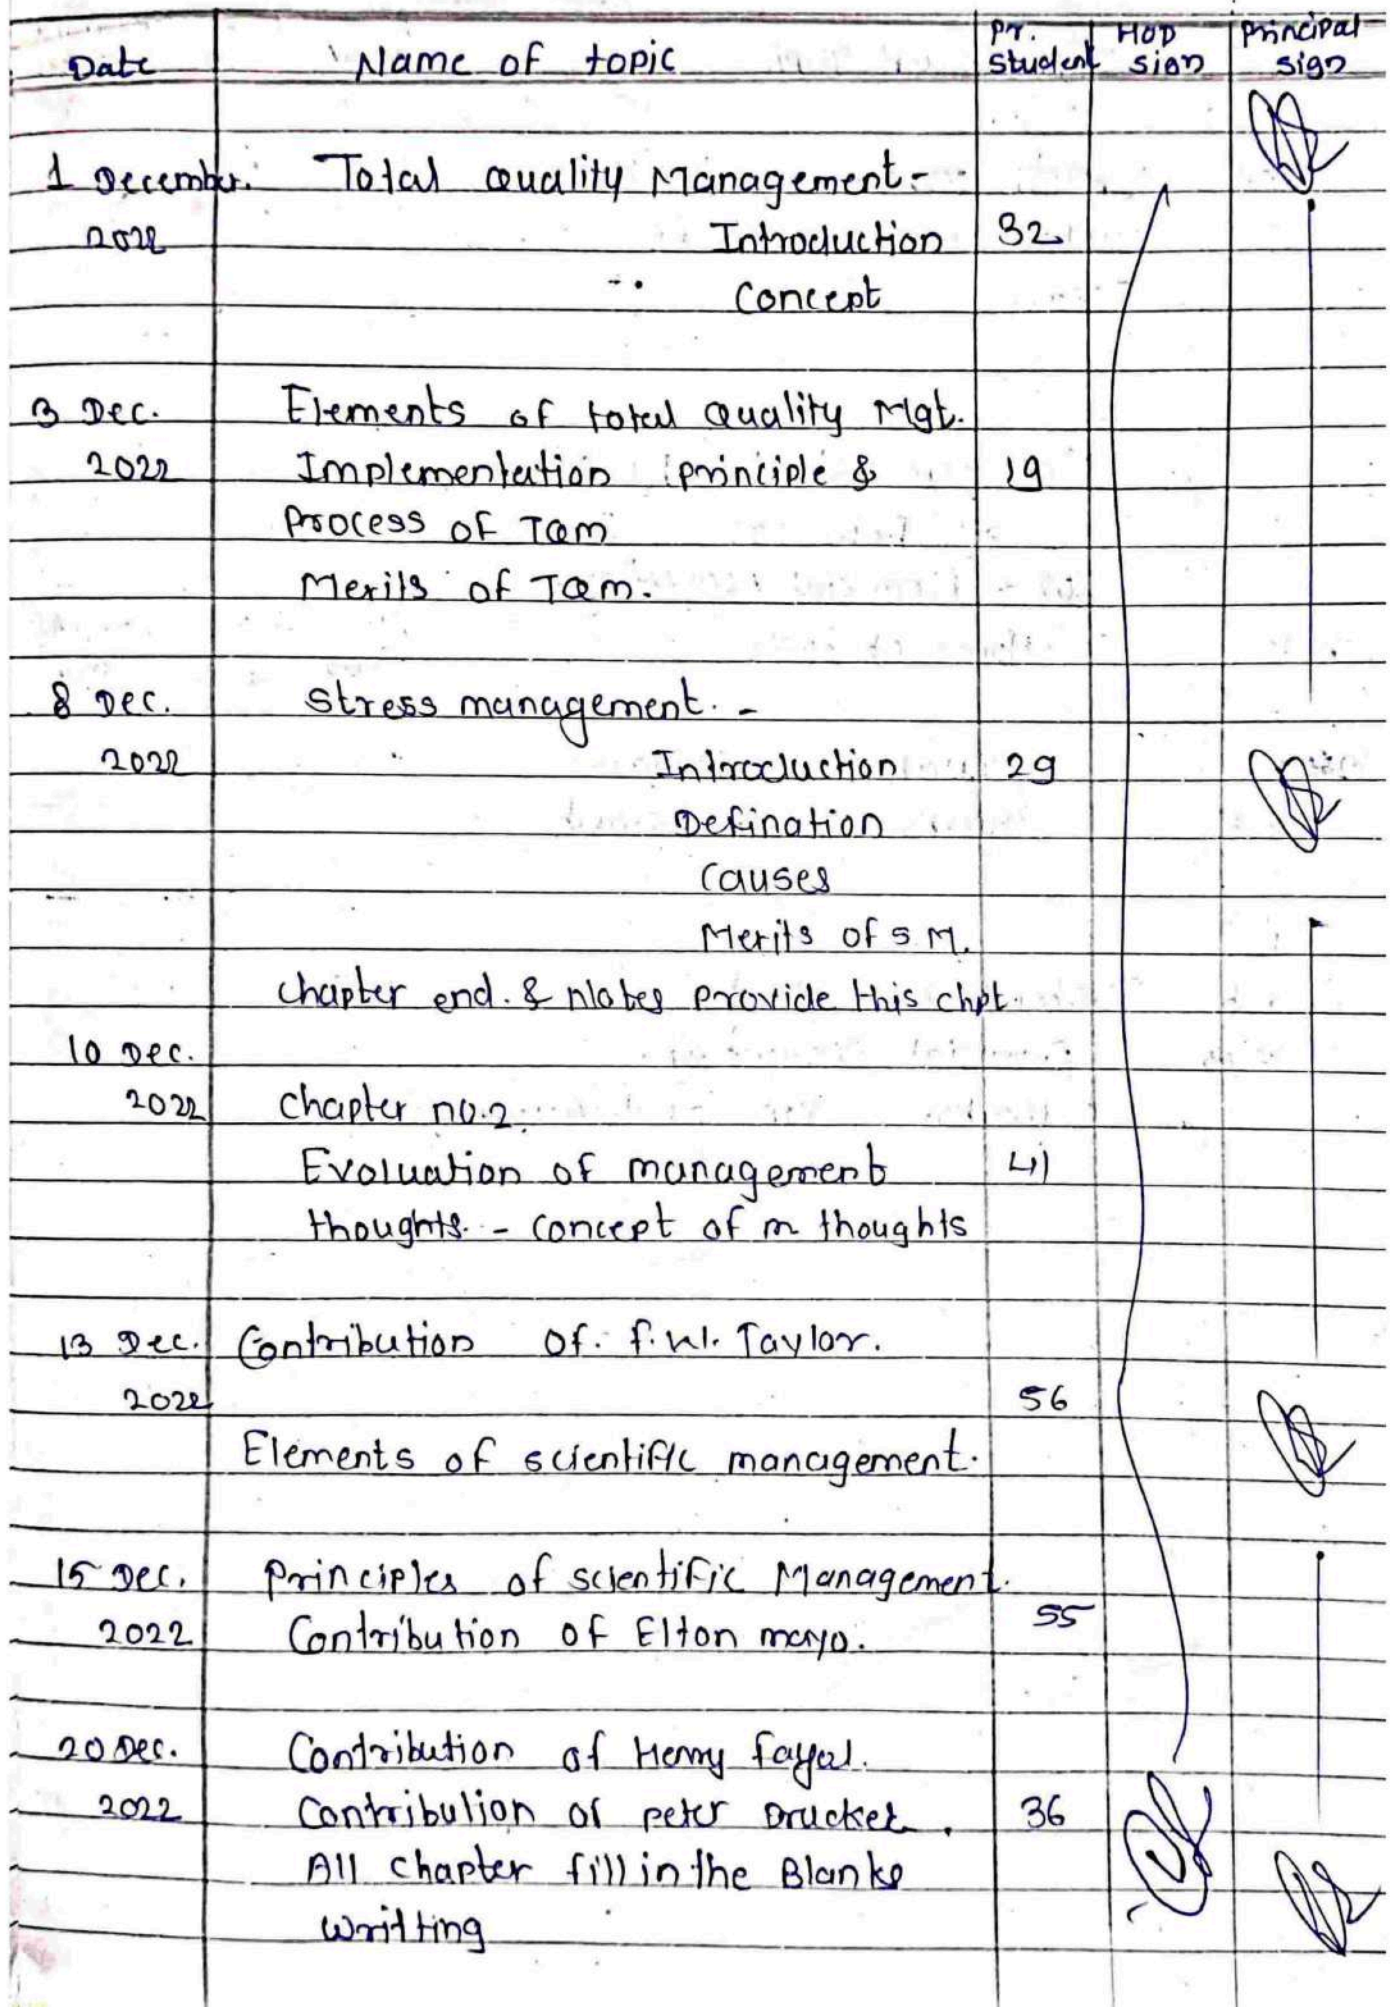 Date Name of topic Pr. Student HOD sign Principal sign
1 December. Total Quality Management-
2022 Introduction 32
Concept
3 Dec. Elements of total Quality Mgt.
2022 Implementation principle & 19
Process of TQM
Merits of TQM.
8 Dec. Stress management. -
2022 Introduction 29
Defination
Causes
Merits of S M.
Chapter end. & Notes provide this chpt.
10 Dec.
2022 Chapter no.2
Evaluation of management 41
thoughts. - concept of m thoughts
13 Dec. Contribution of. F.W. Taylor.
2022 56
Elements of scientific management.
15 Dec. Principles of scientific Management.
2022 Contribution of Elton mayo. 55
20 Dec. Contribution of Henry Fayal.
2022 Contribution of Peter Drucker. 36
All chapter fill in the Blanks
writting